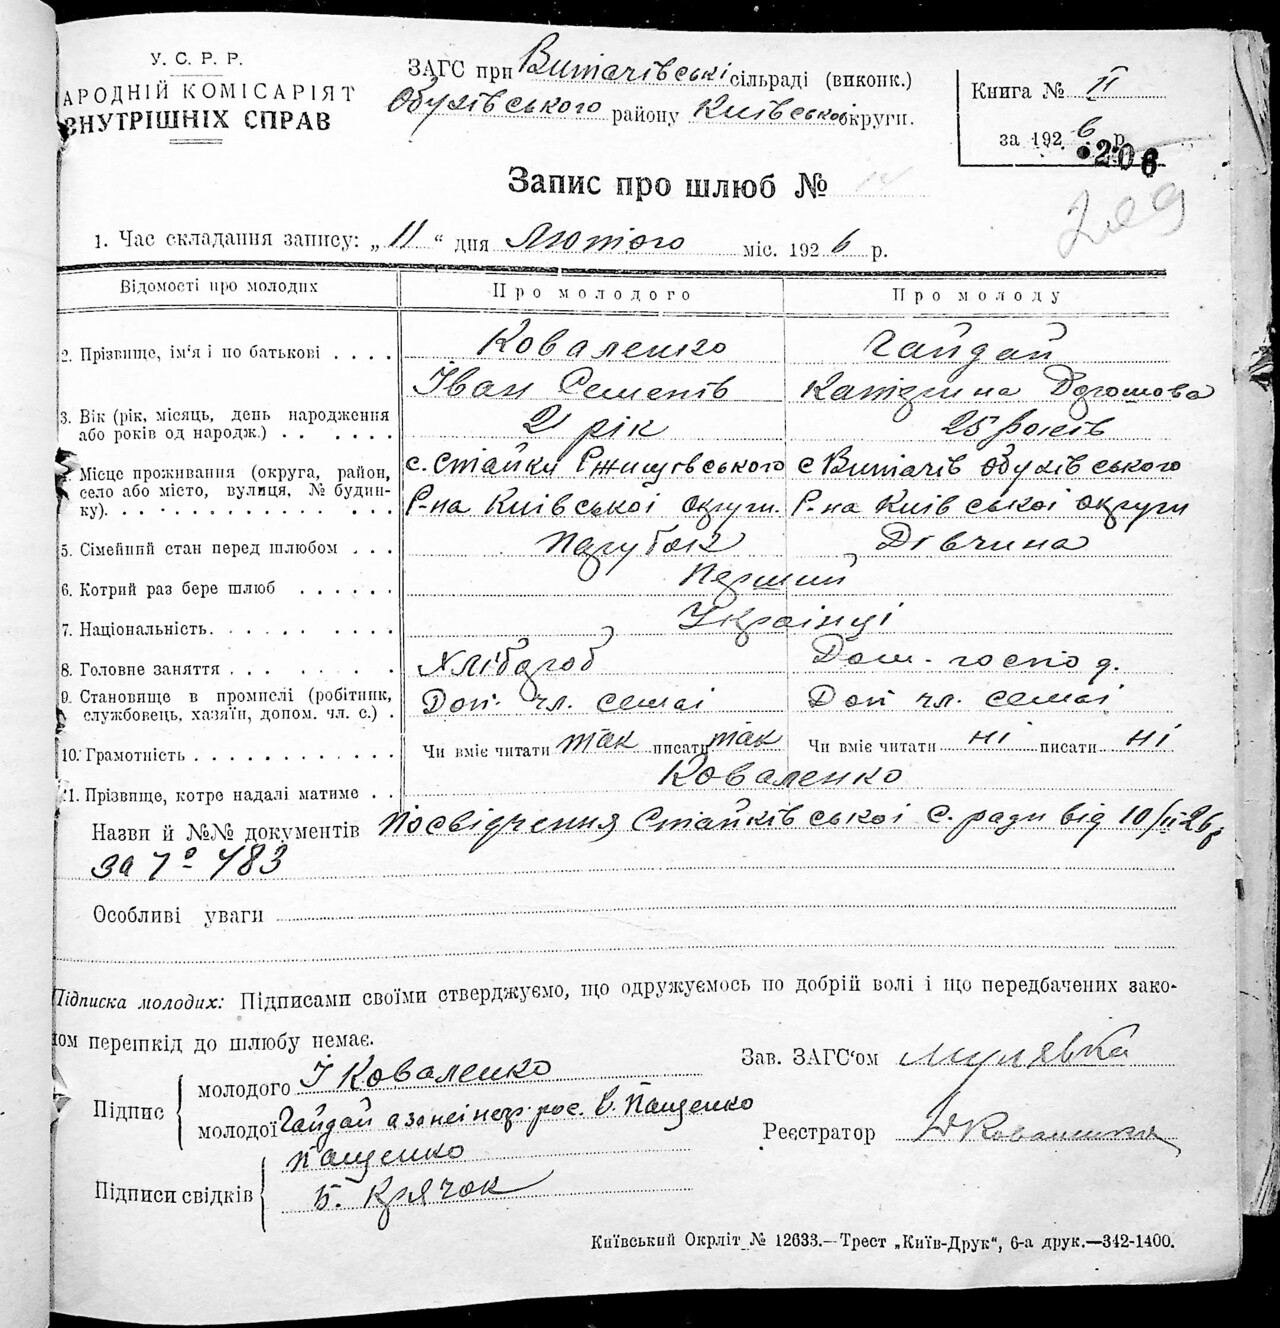 У. С. Р. Р.
АРОДНІЙ КОМІСАРІЯТ
ВНУТРІШНІХ СПРАВ
ЗАГС при Витачівські сільраді (виконк.)
Обухівського району Київської округи.
Книга № II
за 1926 р.
206
209
Запис про шлюб №
1. Час складання запису: „11" дня Лютого міс. 1926 р.
Відомості про молодих
Про молодого
Про молоду
2. Прізвище, ім'я і по батькові . . . .
Коваленко
Гайдай
Іван Семенів
Катерина
3. Вік (рік, місяць, день народження
або років од народж.) . . . . . .
21 рік
25 років
Місце проживання (округа, район,
село або місто, вулиця, № будин-
ку). . . . . . . . . . . . . . .
с. Стайки Ржищівського
Р-на Київської округи.
с Витачів Обухівського
Р-на Київської округи
5. Сімейний стан перед шлюбом . . .
Парубок
Дівчина
6. Котрий раз бере шлюб . . . . . .
Перший
7. Національність. . . . . . . . . .
Українці
8. Головне заняття . . . . . . . .
Хлібороб
Дом. господ.
9. Становище в промислі (робітник,
службовець, хазяїн, допом. чл. с.) .
Доп. чл. семьі
Доп чл. семьі
10. Грамотність . . . . . . . . . . . .
Чи вміє читати так писати так
Чи вміє читати ні писати ні
11. Прізвище, котре надалі матиме . .
Коваленко
Назви й №№ документів Посвідчення Стайківської С. ради від 10/II 26 р
за № 783
Особливі уваги
Підписка молодих: Підписами своїми стверджуємо, що одружуємось по добрій волі і що передбачених зако-
ном перешкід до шлюбу немає.
Підпис
молодого І Коваленко
молодої Гайдай а за неї непис. рос. Пащенко
Підписи свідків
Пащенко
Б. Крячок
Зав. ЗАГС'ом Мулявка
Реєстратор
Київський Окрліт № 12633.—Трест „Київ-Друк", 6-а друк.—342-1400.